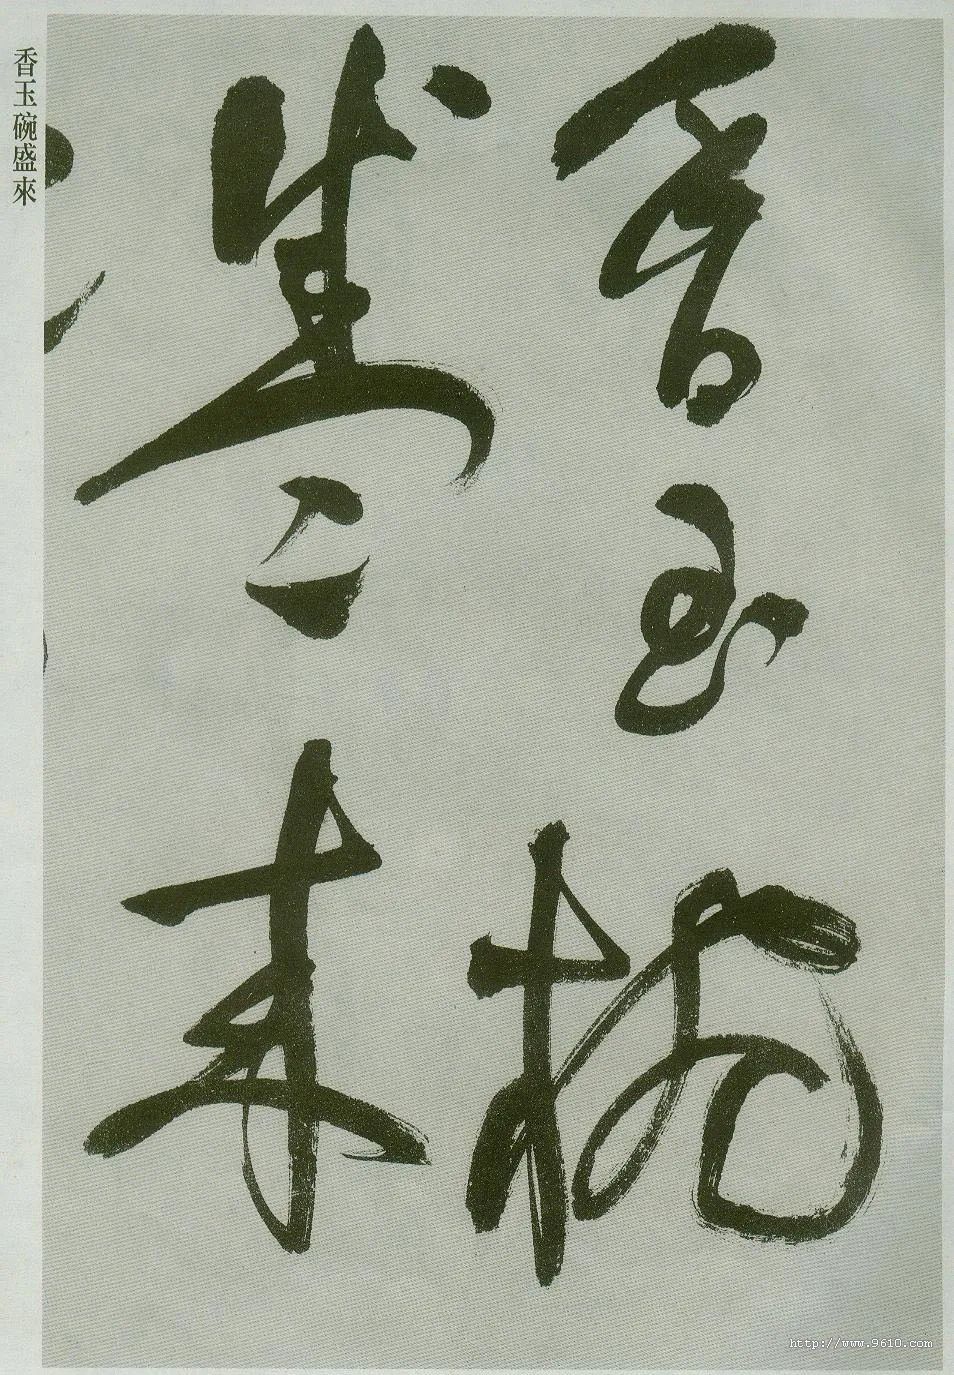 香玉椀
盛來
香玉碗盛來
http://www.9610.com